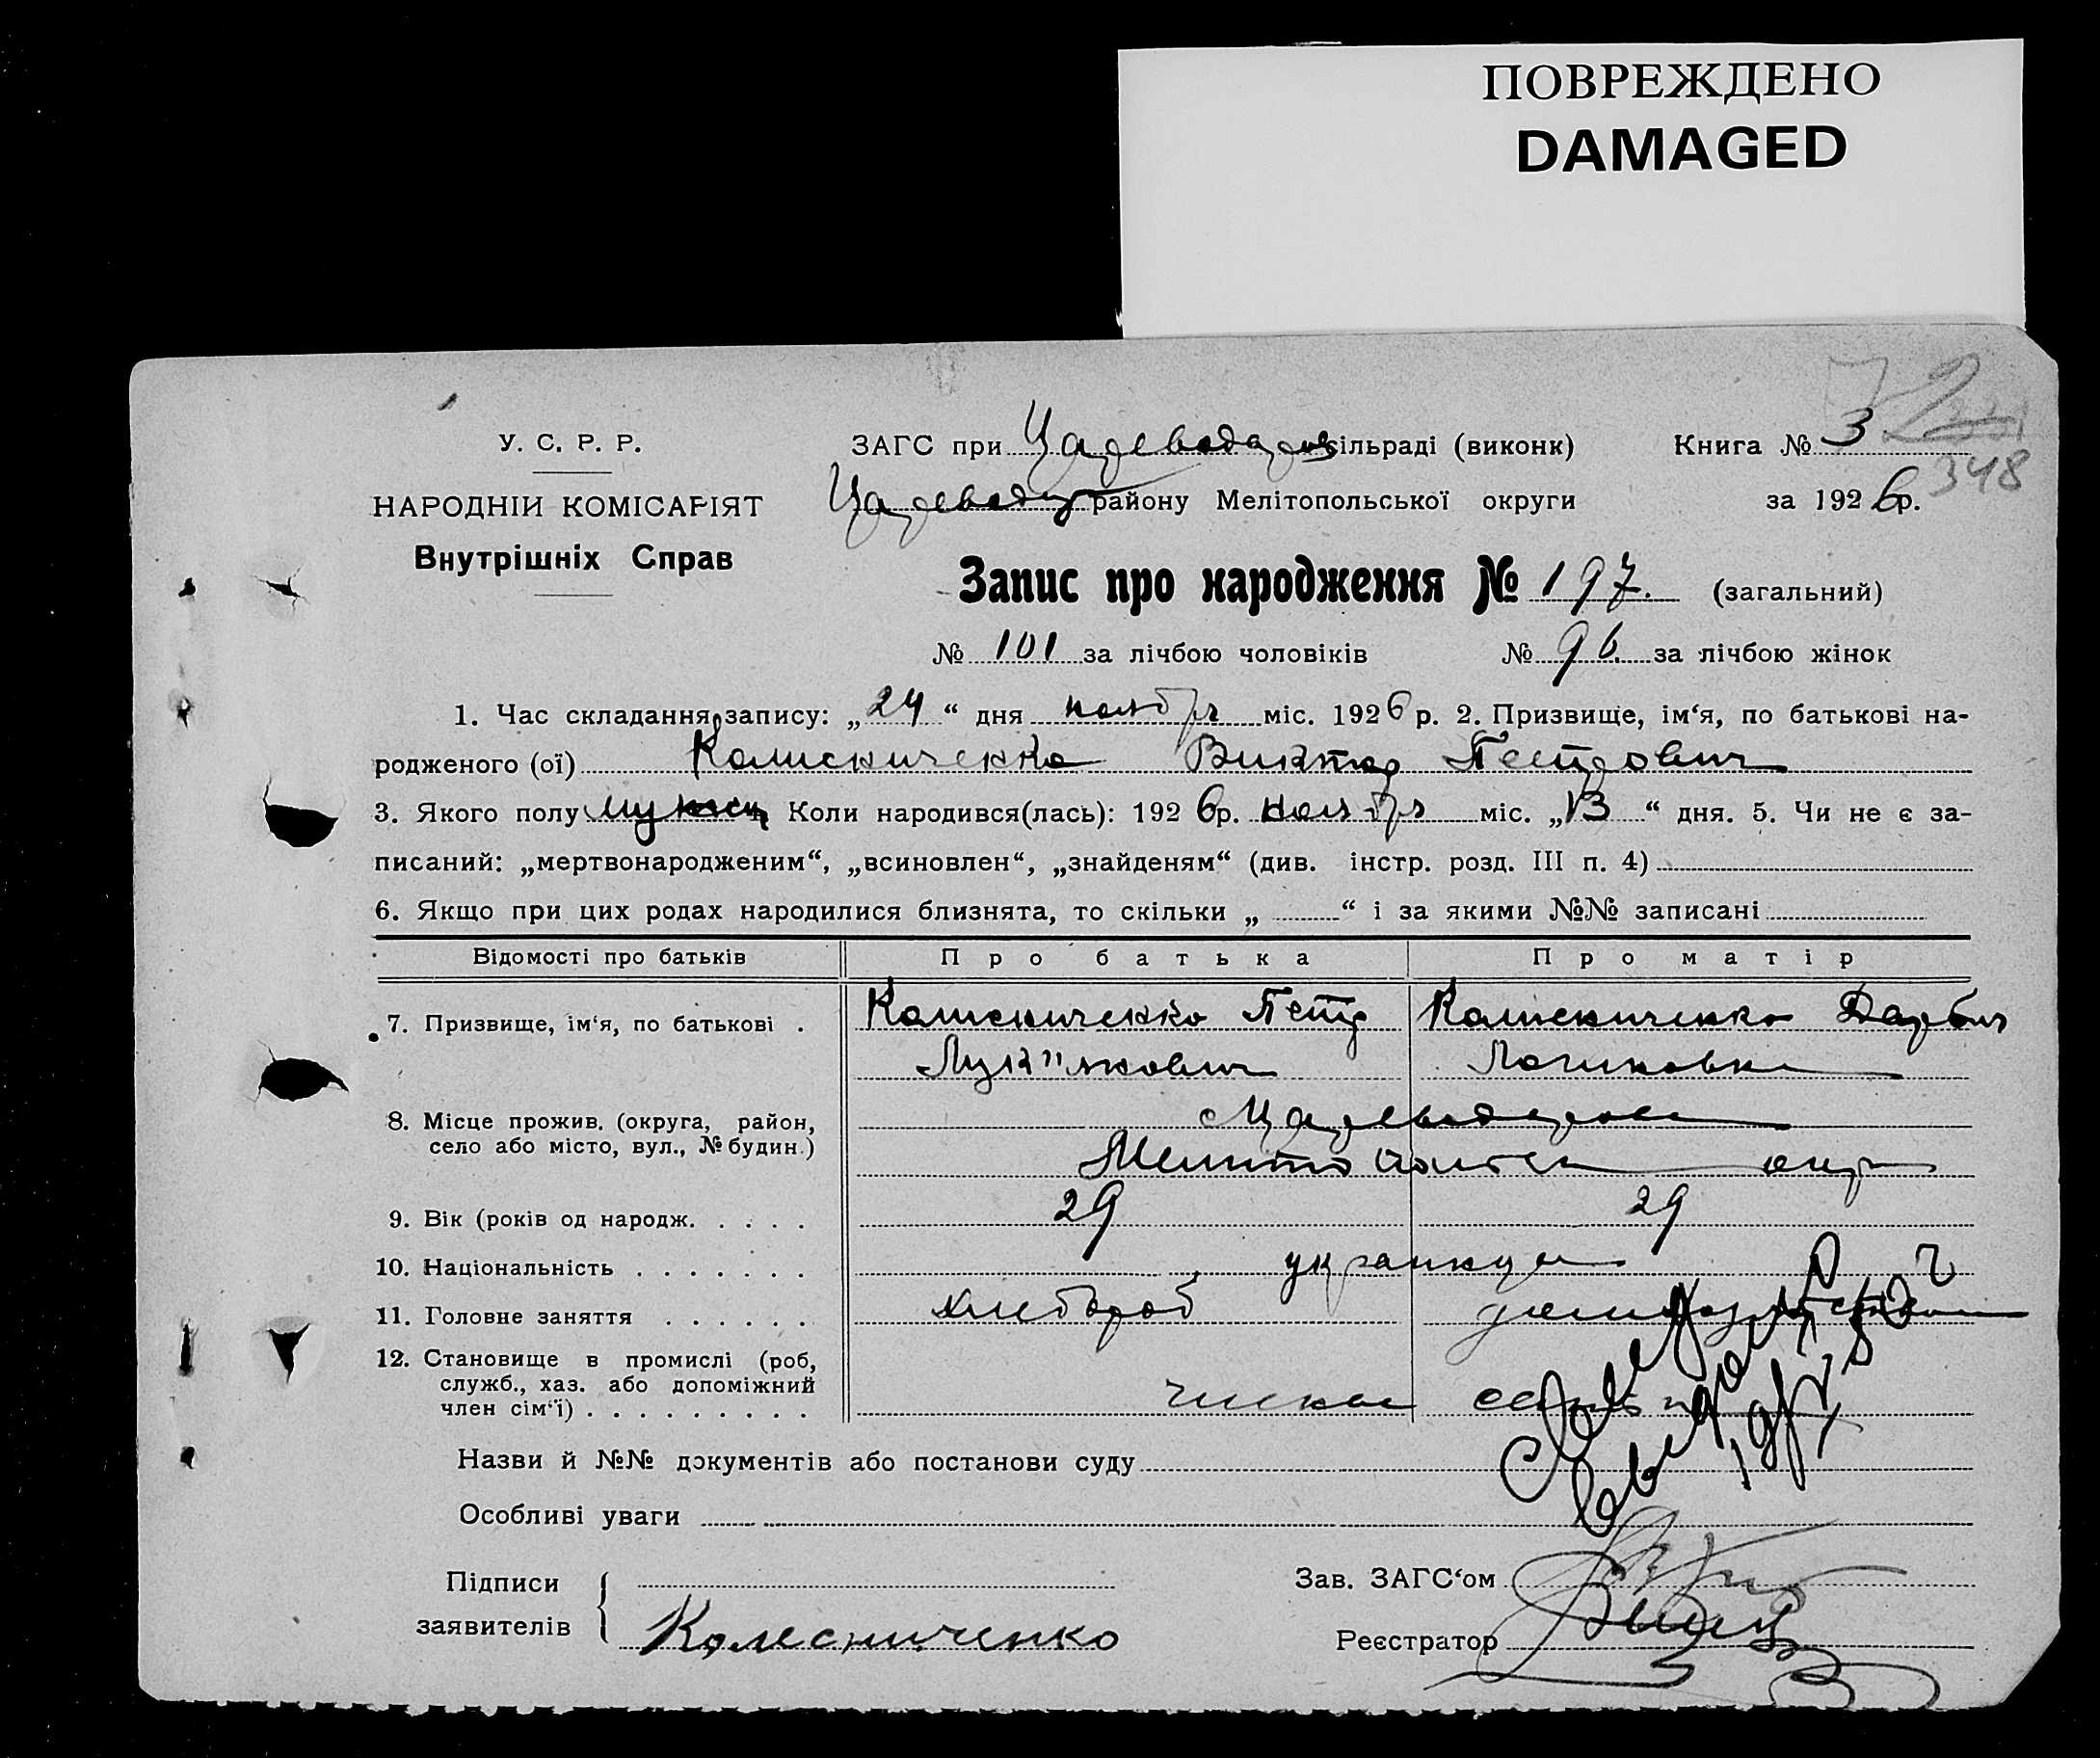 ПОВРЕЖДЕНО
DAMAGED
У. С. Р. Р.
НАРОДНІИ КОМІСАРІЯТ
Внутрішніх Справ
ЗАГС при сільраді (виконк)
району Мелітопольської округи
Книга № 3
348
за 1926 р.
Запис про народження № 197. (загальний)
№ 101 за лічбою чоловіків № 96 за лічбою жінок
1. Час складання запису: „24“ дня ноября міс. 1926 р. 2. Призвище, ім‘я, по батькові на-
родженого (ої) Колисниченко Виктор Петрович
3. Якого полу Коли народився(лась): 1926 р. ноября міс. „13“ дня. 5. Чи не є за-
писаний: „мертвонародженим“, „всиновлен“, „знайденям“ (див. інстр. розд. III п. 4)
6. Якщо при цих родах народилися близнята, то скільки „ “ і за якими №№ записані
Відомості про батьків Про батька Про матір
7. Призвище, ім‘я, по батькові . Колисниченко Петр Колисниченко Дарья
Лукьянович
8. Місце прожив. (округа, район,
село або місто, вул., № будин.)
Мелитопольск окр
9. Вік (років од народж. . . . . 29 29
10. Національність . . . . . . . украинцы
11. Головне заняття . . . . . . хлебороб
12. Становище в промислі (роб,
служб., хаз. або допоміжний
член сім‘ї) . . . . . . . . . члены
Назви й №№ документів або постанови суду
Особливі уваги
Підписи
заявителів Колесниченко
Зав. ЗАГС‘ом
Реєстратор